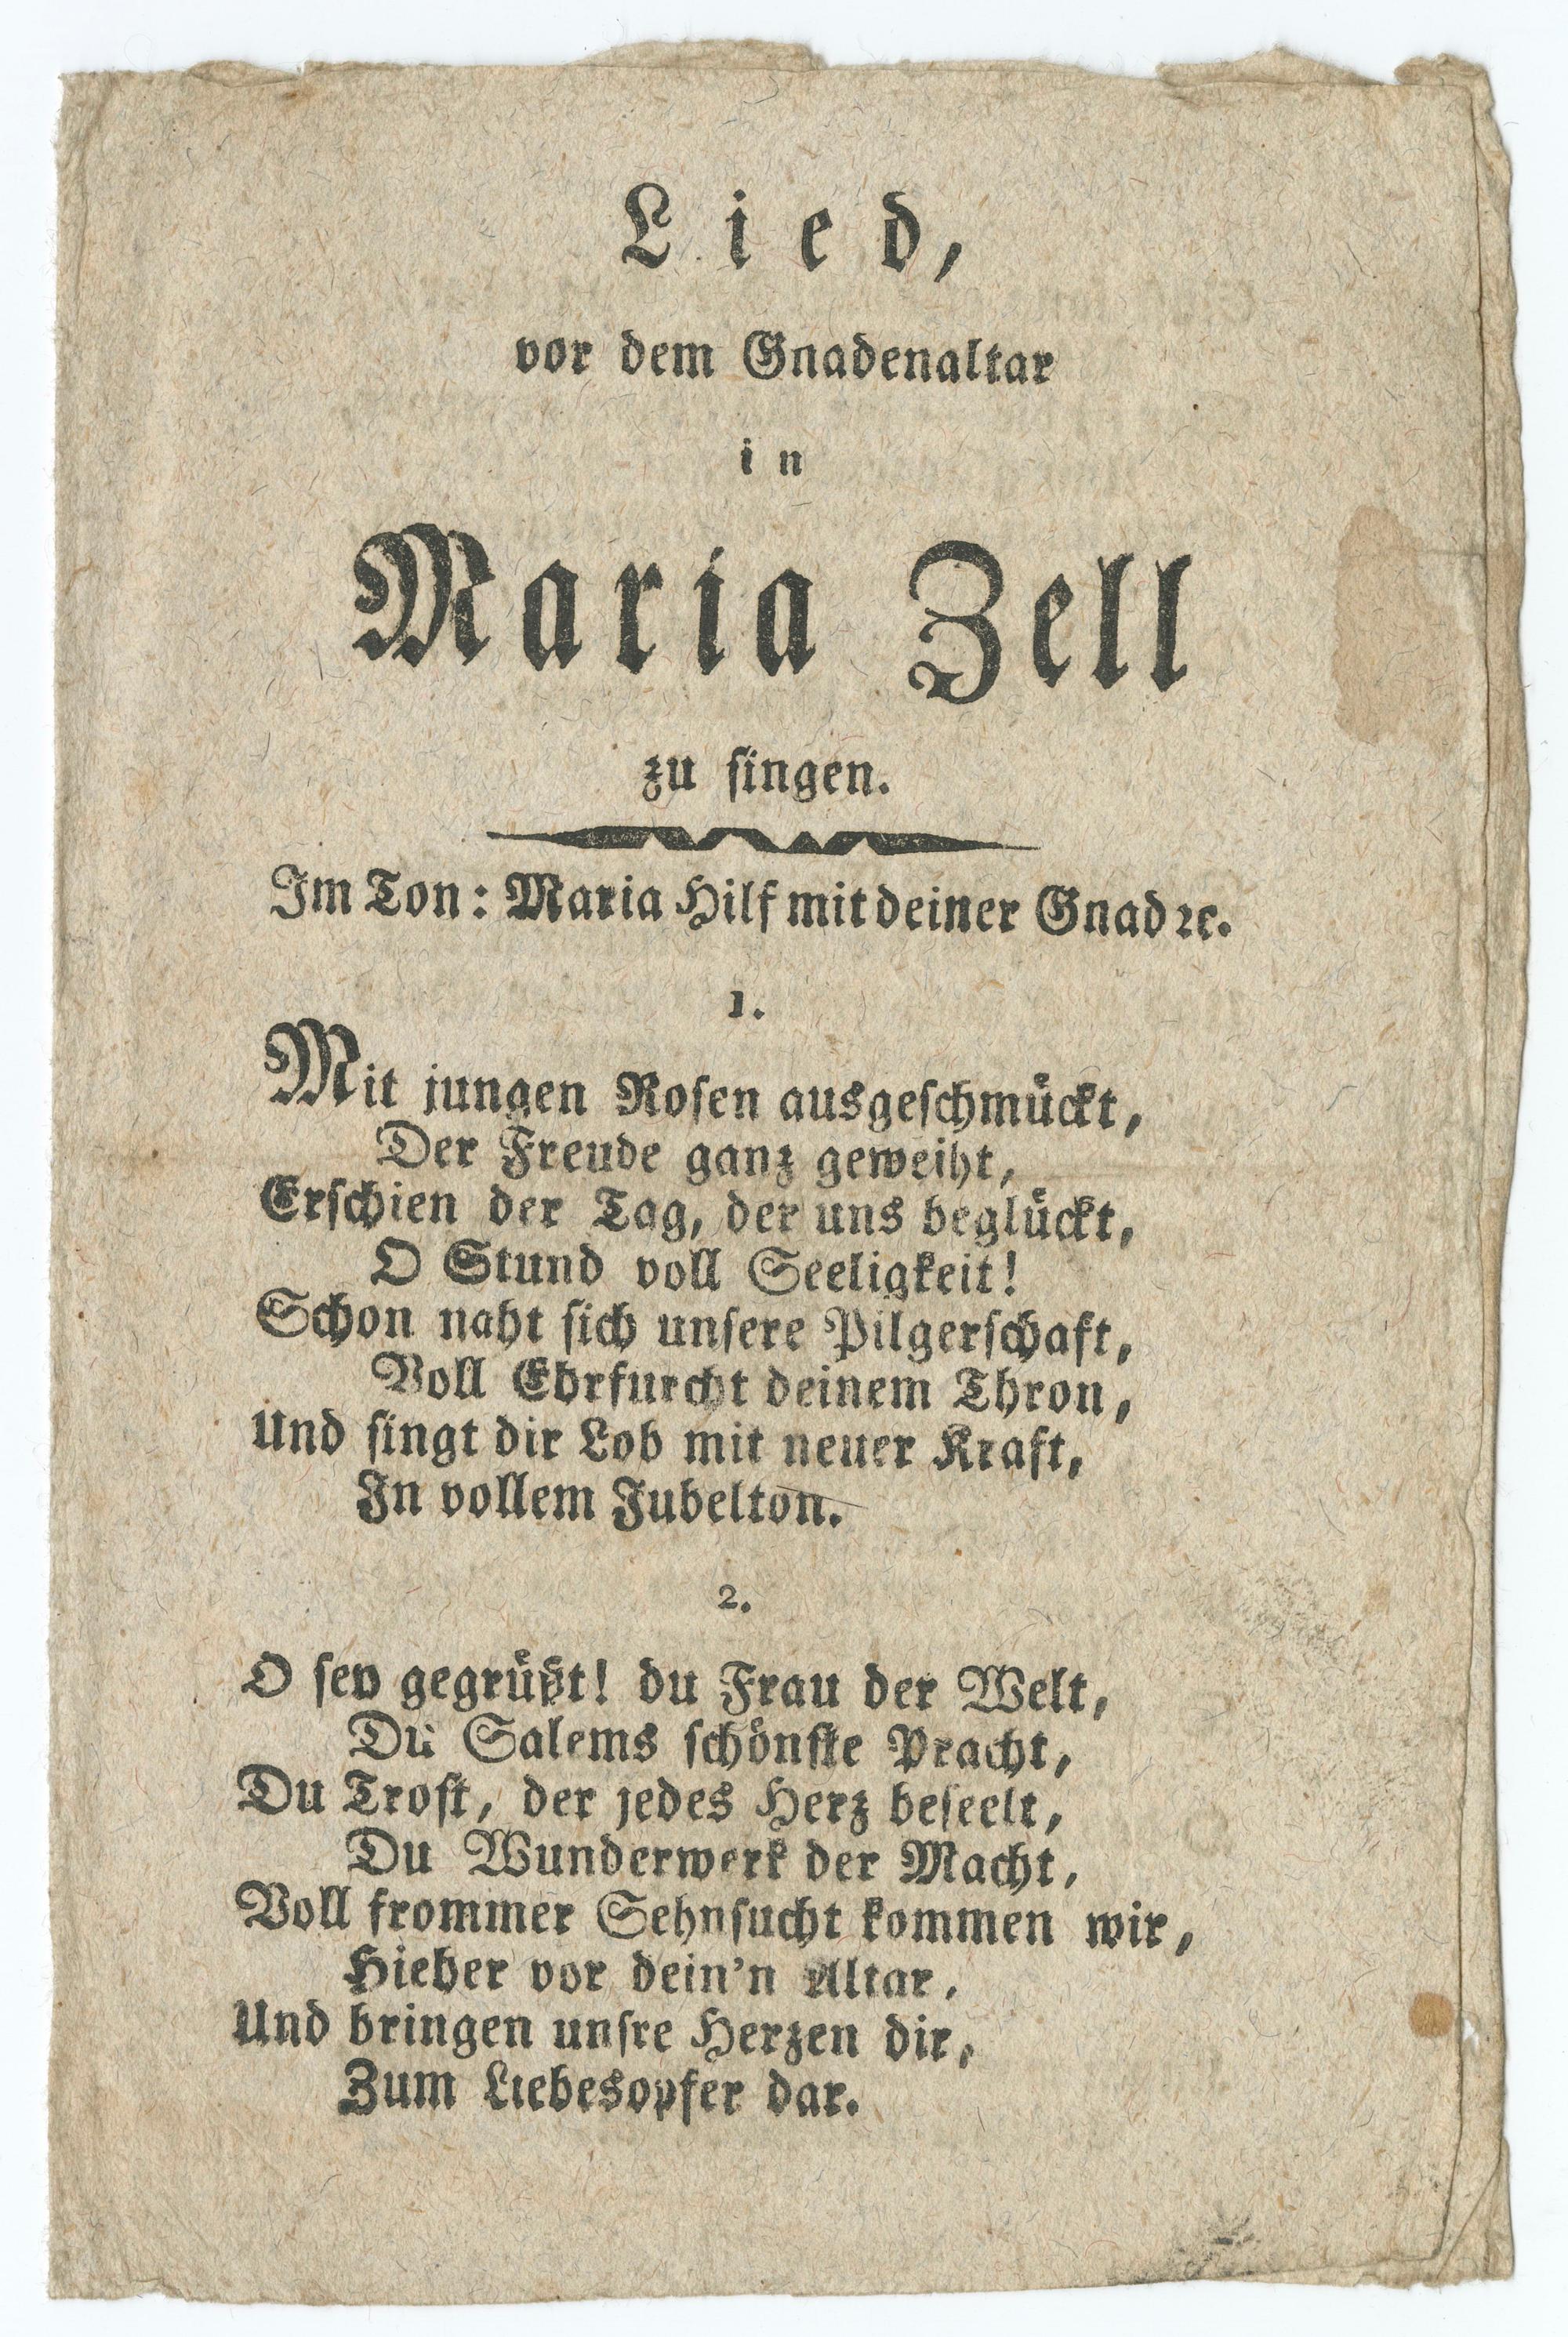 Lied,
vor dem Gnadenaltar
in
Maria Zell
zu singen.
Im Ton: Maria Hilf mit deiner Gnad ꝛc.
1.
Mit jungen Rosen ausgeschmückt,
Der Freude ganz geweiht,
Erschien der Tag, der uns beglückt,
O Stund voll Seeligkeit!
Schon naht sich unsere Pilgerschaft,
Voll Ehrfurcht deinem Thron,
Und singt dir Lob mit neuer Kraft,
In vollem Jubelton.
2.
O sey gegrüßt! du Frau der Welt,
Du Salems schönste Pracht,
Du Trost, der jedes Herz beseelt,
Du Wunderwerk der Macht,
Voll frommer Sehnsucht kommen wir,
Hieher vor dein'n Altar,
Und bringen unsre Herzen dir,
Zum Liebesopfer dar.